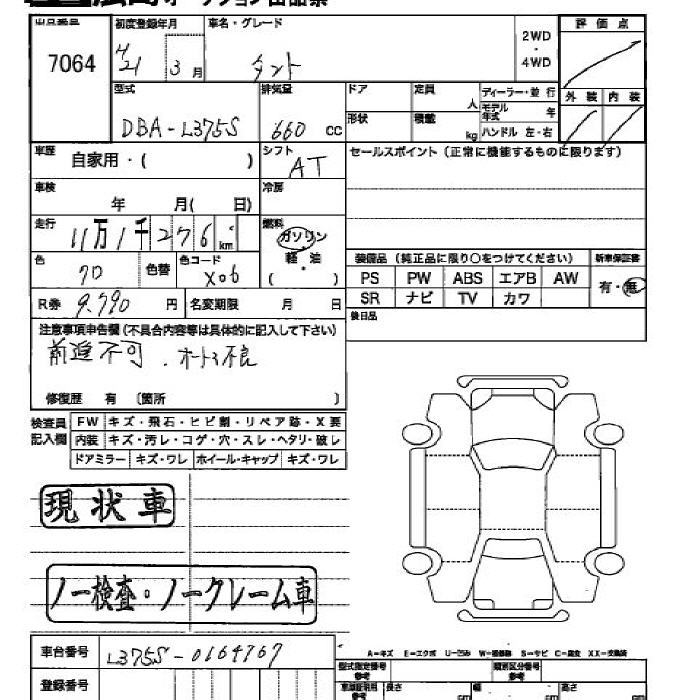 オークション出品票
出品番号 初度登録年月 車名・グレード 評価点
7064 H21 3月 タント 2WD・4WD
外装 内装
型式 排気量 ドア 定員 人 ディーラー・並行
DBA-L375S 660 CC 形状 積載 kg モデル年式 年
ハンドル 左・右
車歴 自家用・( ) シフト AT セールスポイント（正常に機能するものに限ります）
車検 年 月( 日) 冷房
走行 11万1千276 km 燃料 ガソリン・軽油 ( )
色 色替 色コード X06
装備品（純正品に限り○をつけてください） 新車保証書
PS PW ABS エアB AW 有・無
SR ナビ TV カワ
R券 9,790円 名変期限 月 日 後日品
注意事項申告欄（不具合内容等は具体的に記入して下さい）
前進不可．オートマ不良
修復歴 有 〔箇所 〕
検査員記入欄 FW キズ・飛石・ヒビ割・リペア跡・X要
内装 キズ・汚レ・コゲ・穴・スレ・ヘタリ・破レ
ドアミラー キズ・ワレ ホイール・キャップ キズ・ワレ
現状車
ノー検査・ノークレーム車
A－キズ E－エクボ U－凹み W－補修跡 S－サビ C－腐食 XX－交換済
車台番号 L375S-0164767 型式指定番号 参考 類別区分番号 参考
登録番号 長さ cm 幅 cm 高さ cm